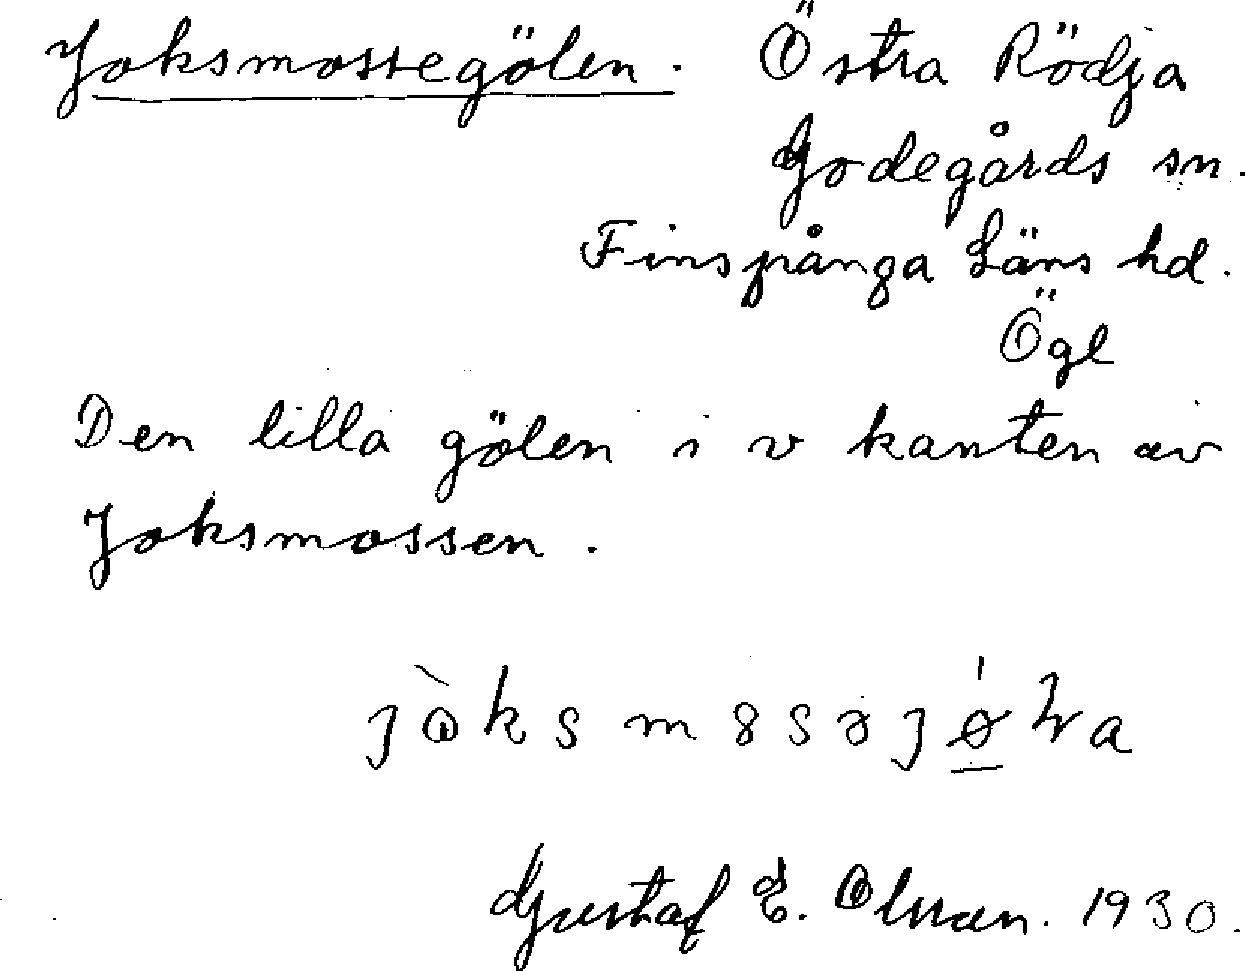 Joksmossegölen. Östra Rödja
Godegårds sn.
Finspånga Läns hd.
Ögl
Den lilla gölen i v kanten av
Joksmossen.
Gustaf E. Olsson. 1930.